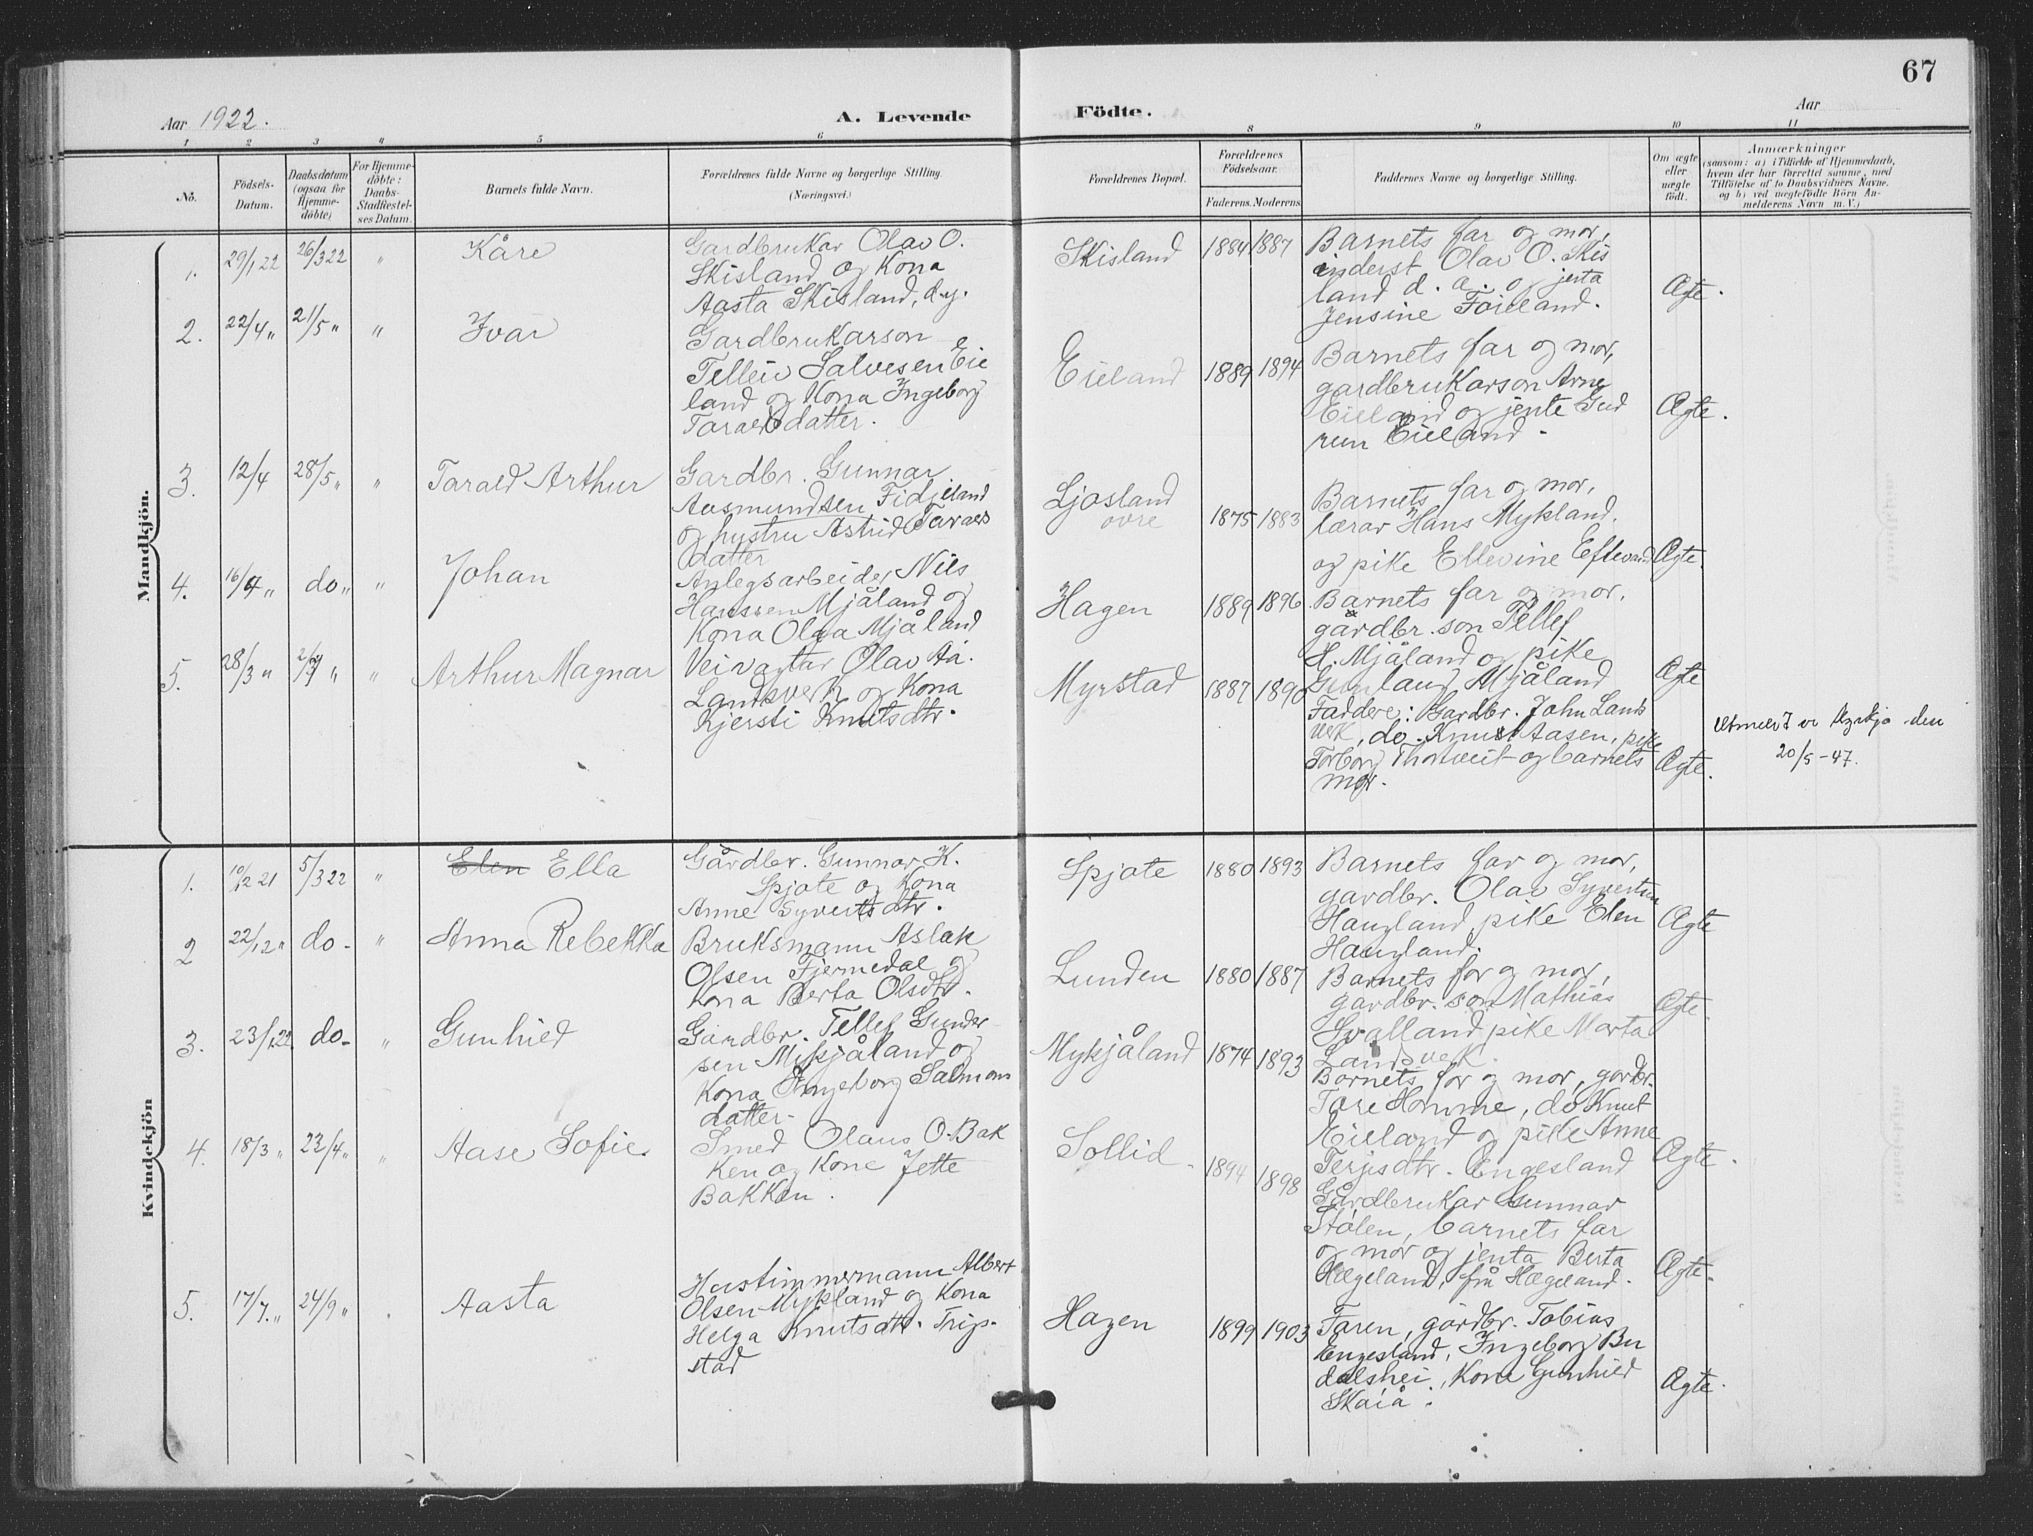 67
Aar 1922.
A. Levende
Födte.
Aar
1 2 3 4 5 6 8 9 10 11
No.
Födsels-Datum.
Daabsdatum (ogsaa for Hjemme-döbte)
For Hjemme-döbte: Daabs-Stadfæstel-ses Datum.
Barnets fulde Navn.
Forældrenes fulde Navne og borgerlige Stilling.
(Næringsvei.)
Forældrenes Bopæl.
Forældrenes Födselsaar.
Faderens. Moderens.
Faddernes Navne og borgerlige Stilling.
Om ægte eller uægte födt.
Anmærkninger
(saasom: a) i Tilfælde af Hjemmedaab,
hvem der har forrettet samme, med
Tilföielse af to Daabsvidners Navne.
og b) ved uægtefödte Börn An-
melderens Navn m. V.)
Mandkjön.
1. 29/1 22 26/3 22 " Kåre
Gardbrukar Olav O.
Skisland og Kona
Aasta Skisland, d.y.
Skisland 1884 1887
Barnets far og mor,
inderst Olav O. Skis
land d. a. og jenta
JensineFöieland.
Ægte.
2. 22/4 " 21/5 " " Ivar
Gardbrukarson
Tellev Salvesen Eie
land og Kona Ingeborg
Taraldsdatter.
Eieland 1889 1894
Barnets far og mor,
gardbrukarson Arne
Eieland og jente Gud
run Eieland.
Ægte.
3. 12/4 28/5 " " Tarald Arthur
Gardbr. Gunnar
Aasmundsen Fidjeland
og hustru Astrid Taralds
datter
Ljosland
övre
1875 1883
Barnets far og mor,
lærar Hans Mykland.
og pike Ellevine Eftevand
Ægte.
4. 16/4 " do " " Johan
Anlegsarbeider Nils
Hanssen Mjåland og
Kona Olga Mjåland
Hagen 1889 1896
Barnets far og mor,
gardbr. son Tellef
H. Mjåland og pike
Gunlaug Mjåland
Ægte
5. 28/3 " 2/7 " " Arthur Magnar
Veivagtar Olav Aa.
Landsverk og Kona
Kjersti Knutsdtr.
Myrstad 1887 1890
Faddere: Gardbr. John Lands
verk, do. Knut Aasen, pike
Torborg Thortveit og barnets
mor.
Ægte.
Utmeldt av Kyrkja den
20/5-47.
Kvindekjön
1. 10/12 21 5/3 22 " Elen Ella
Gårdbr. Gunnar K.
Spjote og Kona
Anne Syvertsdtr.
Spjote 1880 1893
Barnets far og mor,
gardbr. Olav Syvertsen
Haugland, pike Elen
Haugland.
Ægte
2 22/12 " do - " Anna Rebekka
Bruksmann Aslak
Olsen Fjermedal og
Kona Berta Olsdtr.
Lunden 1880 1887
Barnets far og mor,
gardbr. son Mathias
Svalland, pike Marta
Landsverk.
Ægte.
3. 23/1 22 do - " Gunhild
Gardbr. Tellef Gunder
sen Mykjåland og
Kona Ingeborg Salmons
datter-
Mykjåland 1874 1893
Barnets far og mor, gardbr.
Tore Homme, do Knut
Eieland og pike Anne
Terjesdtr. Engesland
Ægte.
4. 18/3 " 23/4 " " Aase Sofie
Smed Olaus O. Bak
ken og Kone Jette
Bakken.
Sollid 1894 1898
Gårdbrukar Gunnar
Stölen, barnets far
og mor og jenta Berta
Hægeland, frå Hægeland.
Ægte.
5. 17/7. " 24/9 " Aasta
Hustimmermann Albert
Olsen Mykland og Kona
Helga Knutsdtr. Trip-
stad
Hagen 1899 1903
Faren, gårdbr. Tobias
Engesland, Ingeborg Bu
dalshei, Kone Gunhild
Skaiå.
Ægte.